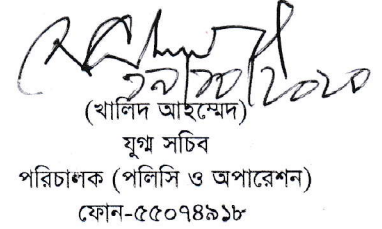 (খালিদ আহম্মেদ)
যুগ্ম সচিব
পরিচালক (পলিসি ও অপারেশন)
ফোন-৫৫০৭৪৯১৮